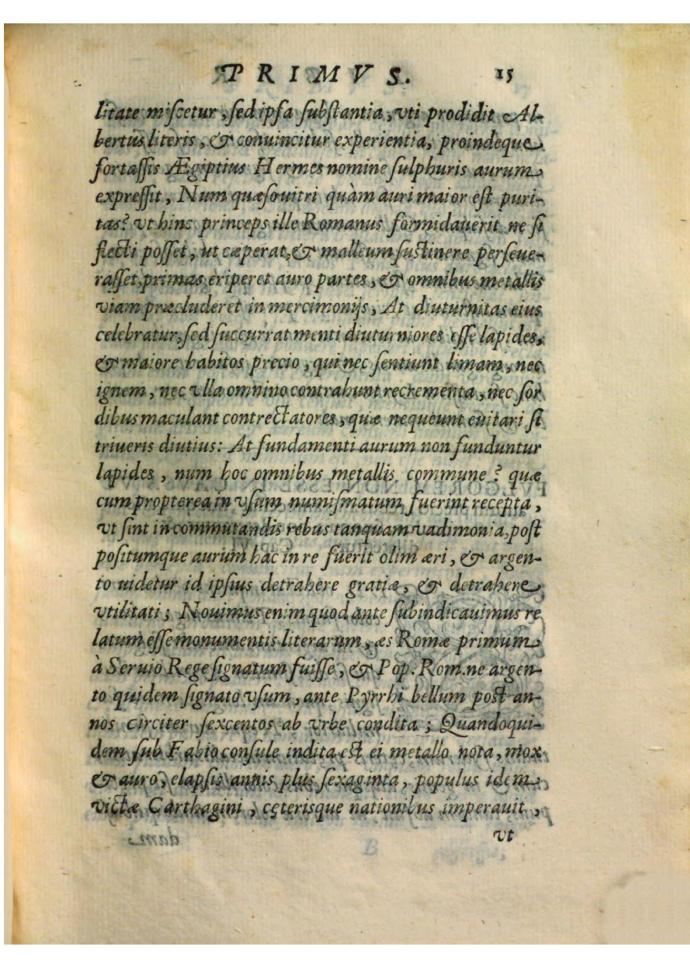 PRIMVS. 15
litate miscetur, sed ipsa substantia, vti prodidit Al-
bertus literis, & conuincitur experientia, proindeque
fortassis Ægiptius Hermes nomine sulphuris aurum
expressit, Num quæso vitri quàm auri maior est puri-
tas? vt hinc princeps ille Romanus formidauerit ne si
flecti posset, ut cæperat, & malleum sustinere perseue-
rasset, primas eriperet auro partes, & omnibus metallis
viam præcluderet in mercimonijs, At diuturnitas eius
celebratur, sed succurrat menti diuturniores esse lapides,
& maiore habitos precio, qui nec sentiunt limam, nec
ignem, nec vlla omnino contrahunt recrementa, nec sor
dibus maculant contrectatores, quæ nequeunt euitari si
triueris diutius: At fundamenti aurum non funduntur
lapides, num hoc omnibus metallis commune? quæ
cum propterea in vsum numismatum fuerint recepta,
vt sint in commutandis rebus tanquam vadimonia, post
positumque aurum hac in re fuerit olim æri, & argen-
to uidetur id ipsius detrahere gratiæ, & detrahere
vtilitati; Nouimus enim quod ante subindicauimus re
latum esse monumentis literarum, æs Romæ primum
à Seruio Rege signatum fuisse, & Pop. Rom. ne argen-
to quidem signato vsum, ante Pyrrhi bellum post an-
nos circiter sexcentos ab vrbe condita; Quandoqui-
dem sub Fabio consule indita est ei metallo nota, mox
& auro, elapsis annis plus sexaginta, populus idem
victæ Carthagini, cęterisque nationibus imperauit,
vt